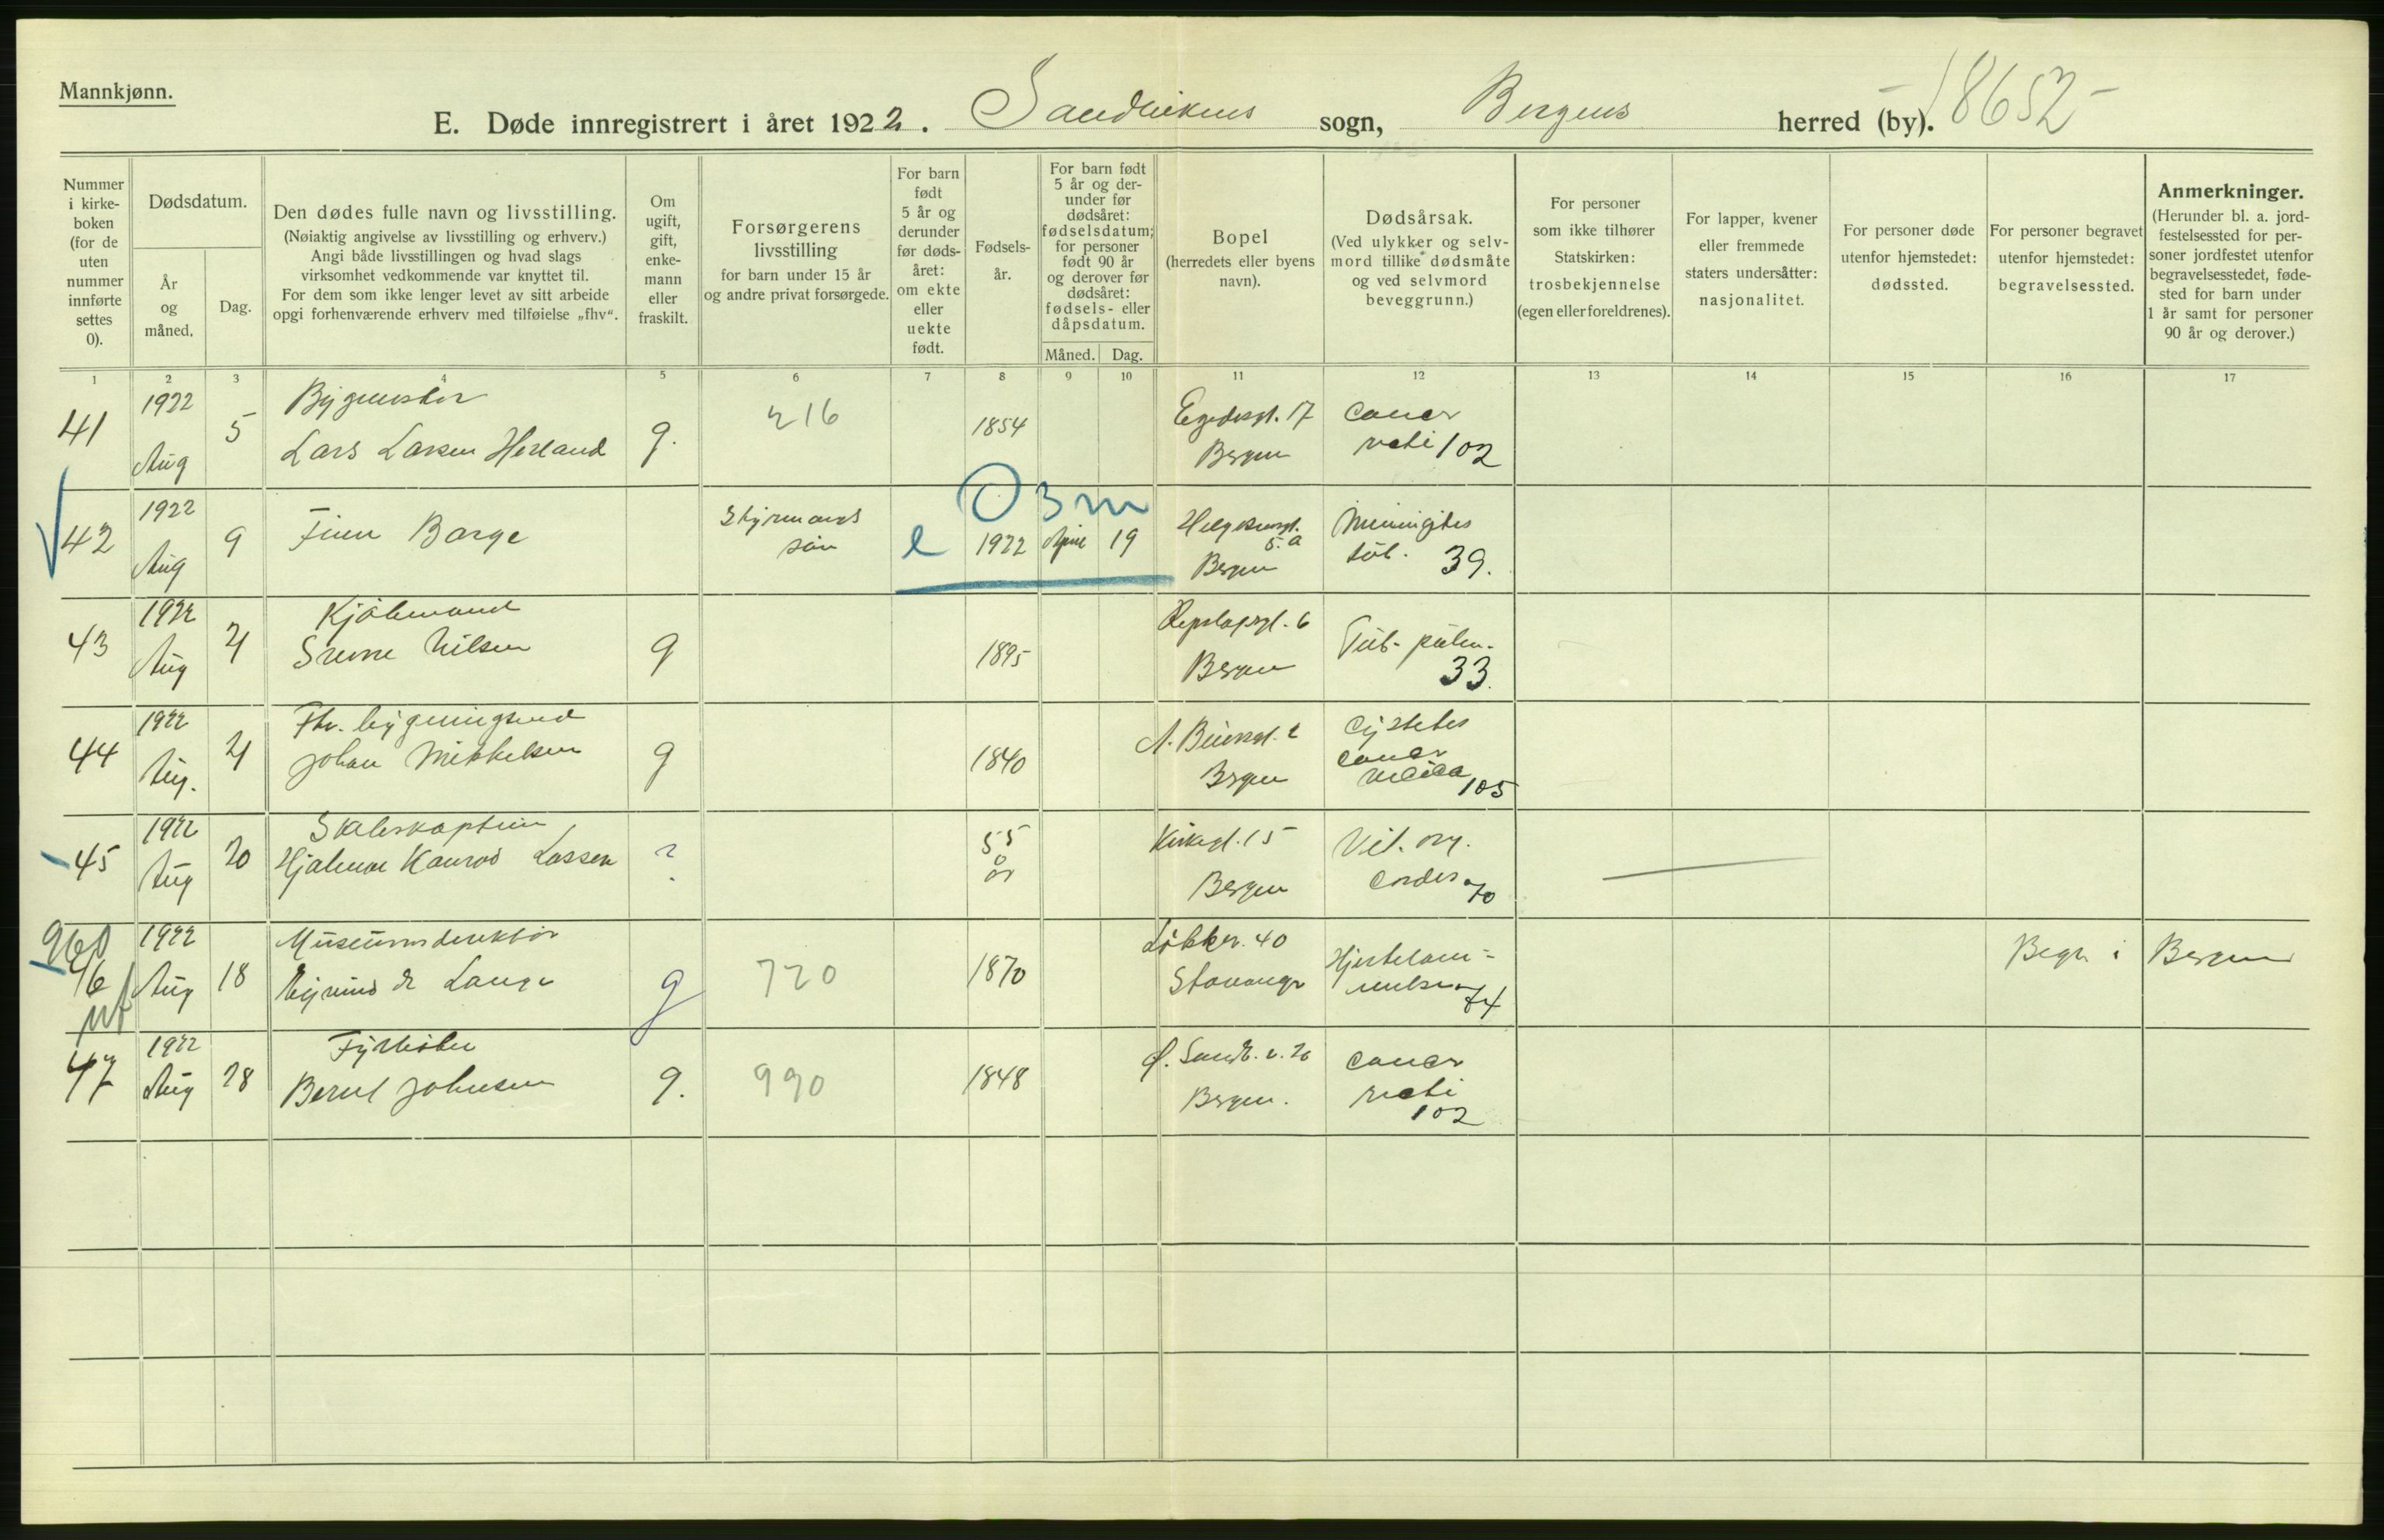 Mannkjønn.
E. Døde innregistrert i året 1922. Sandvikens sogn, Bergens herred (by). 18652
Nummer i kirkeboken (for de uten nummer innførte settes 0).
Dødsdatum.
År og måned.
Dag.
Den dødes fulle navn og livsstilling.
(Nøiaktig angivelse av livsstilling og erhverv.)
Angi både livsstillingen og hvad slags
virksomhet vedkommende var knyttet til.
For dem som ikke lenger levet av sitt arbeide
opgi forhenværende erhverv med tilføielse „fhv“.
Om ugift, gift, enkemann eller fraskilt.
Forsørgerens livsstilling
for barn under 15 år
og andre privat forsørgede.
For barn født 5 år og derunder før dødsåret: om ekte eller uekte født.
Fødselsår.
For barn født 5 år og derunder før dødsåret: fødselsdatum; for personer født 90 år og derover før dødsåret: fødsels- eller dåpsdatum.
Måned. Dag.
Bopel
(herredets eller byens navn).
Dødsårsak.
(Ved ulykker og selvmord tillike dødsmåte og ved selvmord beveggrunn.)
For personer som ikke tilhører Statskirken: trosbekjennelse (egen eller foreldrenes).
For lapper, kvener eller fremmede staters undersåtter: nasjonalitet.
For personer døde utenfor hjemstedet: dødssted.
For personer begravet utenfor hjemstedet: begravelsessted.
Anmerkninger.
(Herunder bl. a. jordfestelsessted for personer jordfestet utenfor begravelsesstedet, fødested for barn under 1 år samt for personer 90 år og derover.)
1 2 3 4 5 6 7 8 9 10 11 12 13 14 15 16 17
41 1922 Aug 5 Bygmester Lars Larsen Herland g. 216 1854 Egedesgt. 17 Bergen Cancer recti 102
O 3 m
42 1922 Aug 9 Finn Barge Styrmands søn e 1922 April 19 Bergen Meningitis tub. 39.
43 1922 Aug 21 Sverre Nilsen g 1895 Repslagergt. 6 Bergen Tub. pulm. 33.
44 1922 Aug. 21 Fhv. bygningssnd Johan Mikkelsen g 1840 Bergen Cystitis cancer vesica 105
45 1922 Aug 20 Skibskaptein Hjalmar Konrad Lassen ? 55 år Kirkegt. 15 Bergen Vit. org. cordis 70
960
46 1922 Aug 18 Museumsdirektør de Lange g 720 1870 Løkkev. 40 Stavanger Hjertelammelse 74 Begr. i Bergen
47 1922 Aug 28 Fyrbøter Bernt Johnsen g. 990 1848 Bergen. Cancer recti 102